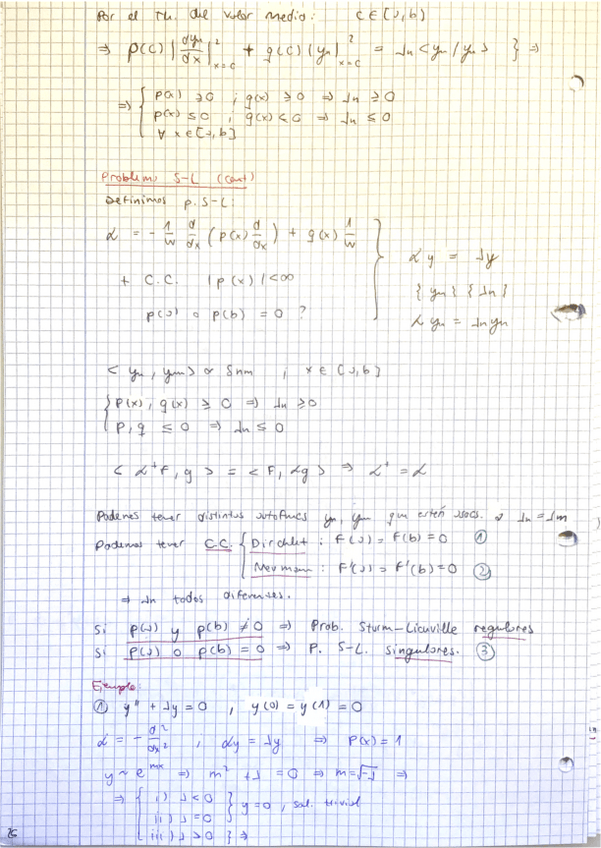 Por el Th. del valor medio: c ∈ [a,b)
⇒ p(c) |dyn/dx|²x=c + q(c) (yn)²x=c = λn <yn/yn> } ⇒
⇒ { p(x) ≥ 0 ; q(x) ≥ 0 ⇒ λn ≥ 0
p(x) ≤ 0 ; q(x) < 0 ⇒ λn ≤ 0
∀ x ∈ [a,b]
Problema S-L (cont)
Definimos p. S-L:
L = - 1/w d/dx (p(x) d/dx) + q(x) 1/w
L y = λy
+ C.C. |p(x)| < ∞
{yn} {λn}
p(a) o p(b) = 0 ?
L yn = λn yn
< yn, ym > ∝ δnm ; x ∈ [a,b]
{ p(x), q(x) ≥ 0 ⇒ λn ≥ 0
p, q ≤ 0 ⇒ λn ≤ 0
< L⁺f, g > = < f, Lg > ⇒ L⁺ = L
Podemos tener distintos autofuncs yn, ym que estén asocs. a λn = λm
Podemos tener C.C. { Dirchlet : F(a) = F(b) = 0 ①
Neumann : F'(a) = F'(b) = 0 ②
⇒ λn todos diferentes.
Si p(a) y p(b) ≠ 0 ⇒ Prob. Sturm-Liouville regulares
Si p(a) o p(b) = 0 ⇒ P. S-L. singulares. ③
Ejemplo:
① y'' + λy = 0 , y(0) = y(1) = 0
L = - d²/dx² ; Ly = λy ⇒ p(x) = 1
y ~ e^mx ⇒ m² + λ = 0 ⇒ m = √-λ ⇒
⇒ { i) λ < 0 } y = 0 , sol. trivial
ii) λ = 0
iii) λ > 0 } ⇒